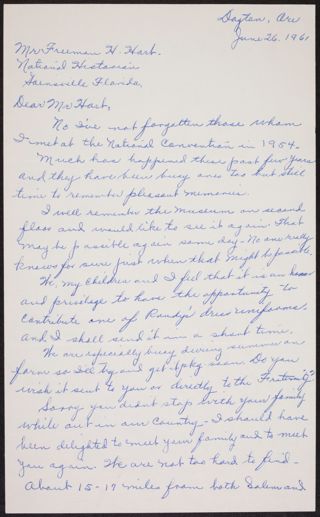 Dayton, Ore
June 26, 1961
Mr Freeman H. Hart.
National Historian
Gainsville Florida,
Dear Mr Hart,
No I've not forgotten those whom
I met at the National Convention in 1954.
Much has happened these past few years
and they have been busy ones too but still
time to remember pleasant memories.
I well remember the Museum on second
floor and would like to see it again. That
may be possible again some day - No one really
knows for sure just when that might be possible
We, my children and I feel that it is an honor
and privilege to have the opportunity to
contribute one of Randy's dress uniforms.
and I shall send it in a short time.
We are especially busy during summer on
farm so I'll try and get pkg soon. Do you
wish it sent to you or directly to the Fraternity?
Sorry you didn't stop with your family
while out in our Country - I should have
been delighted to meet your family and to meet
you again. We are not too hard to find -
About 15-17 miles from both Salem and